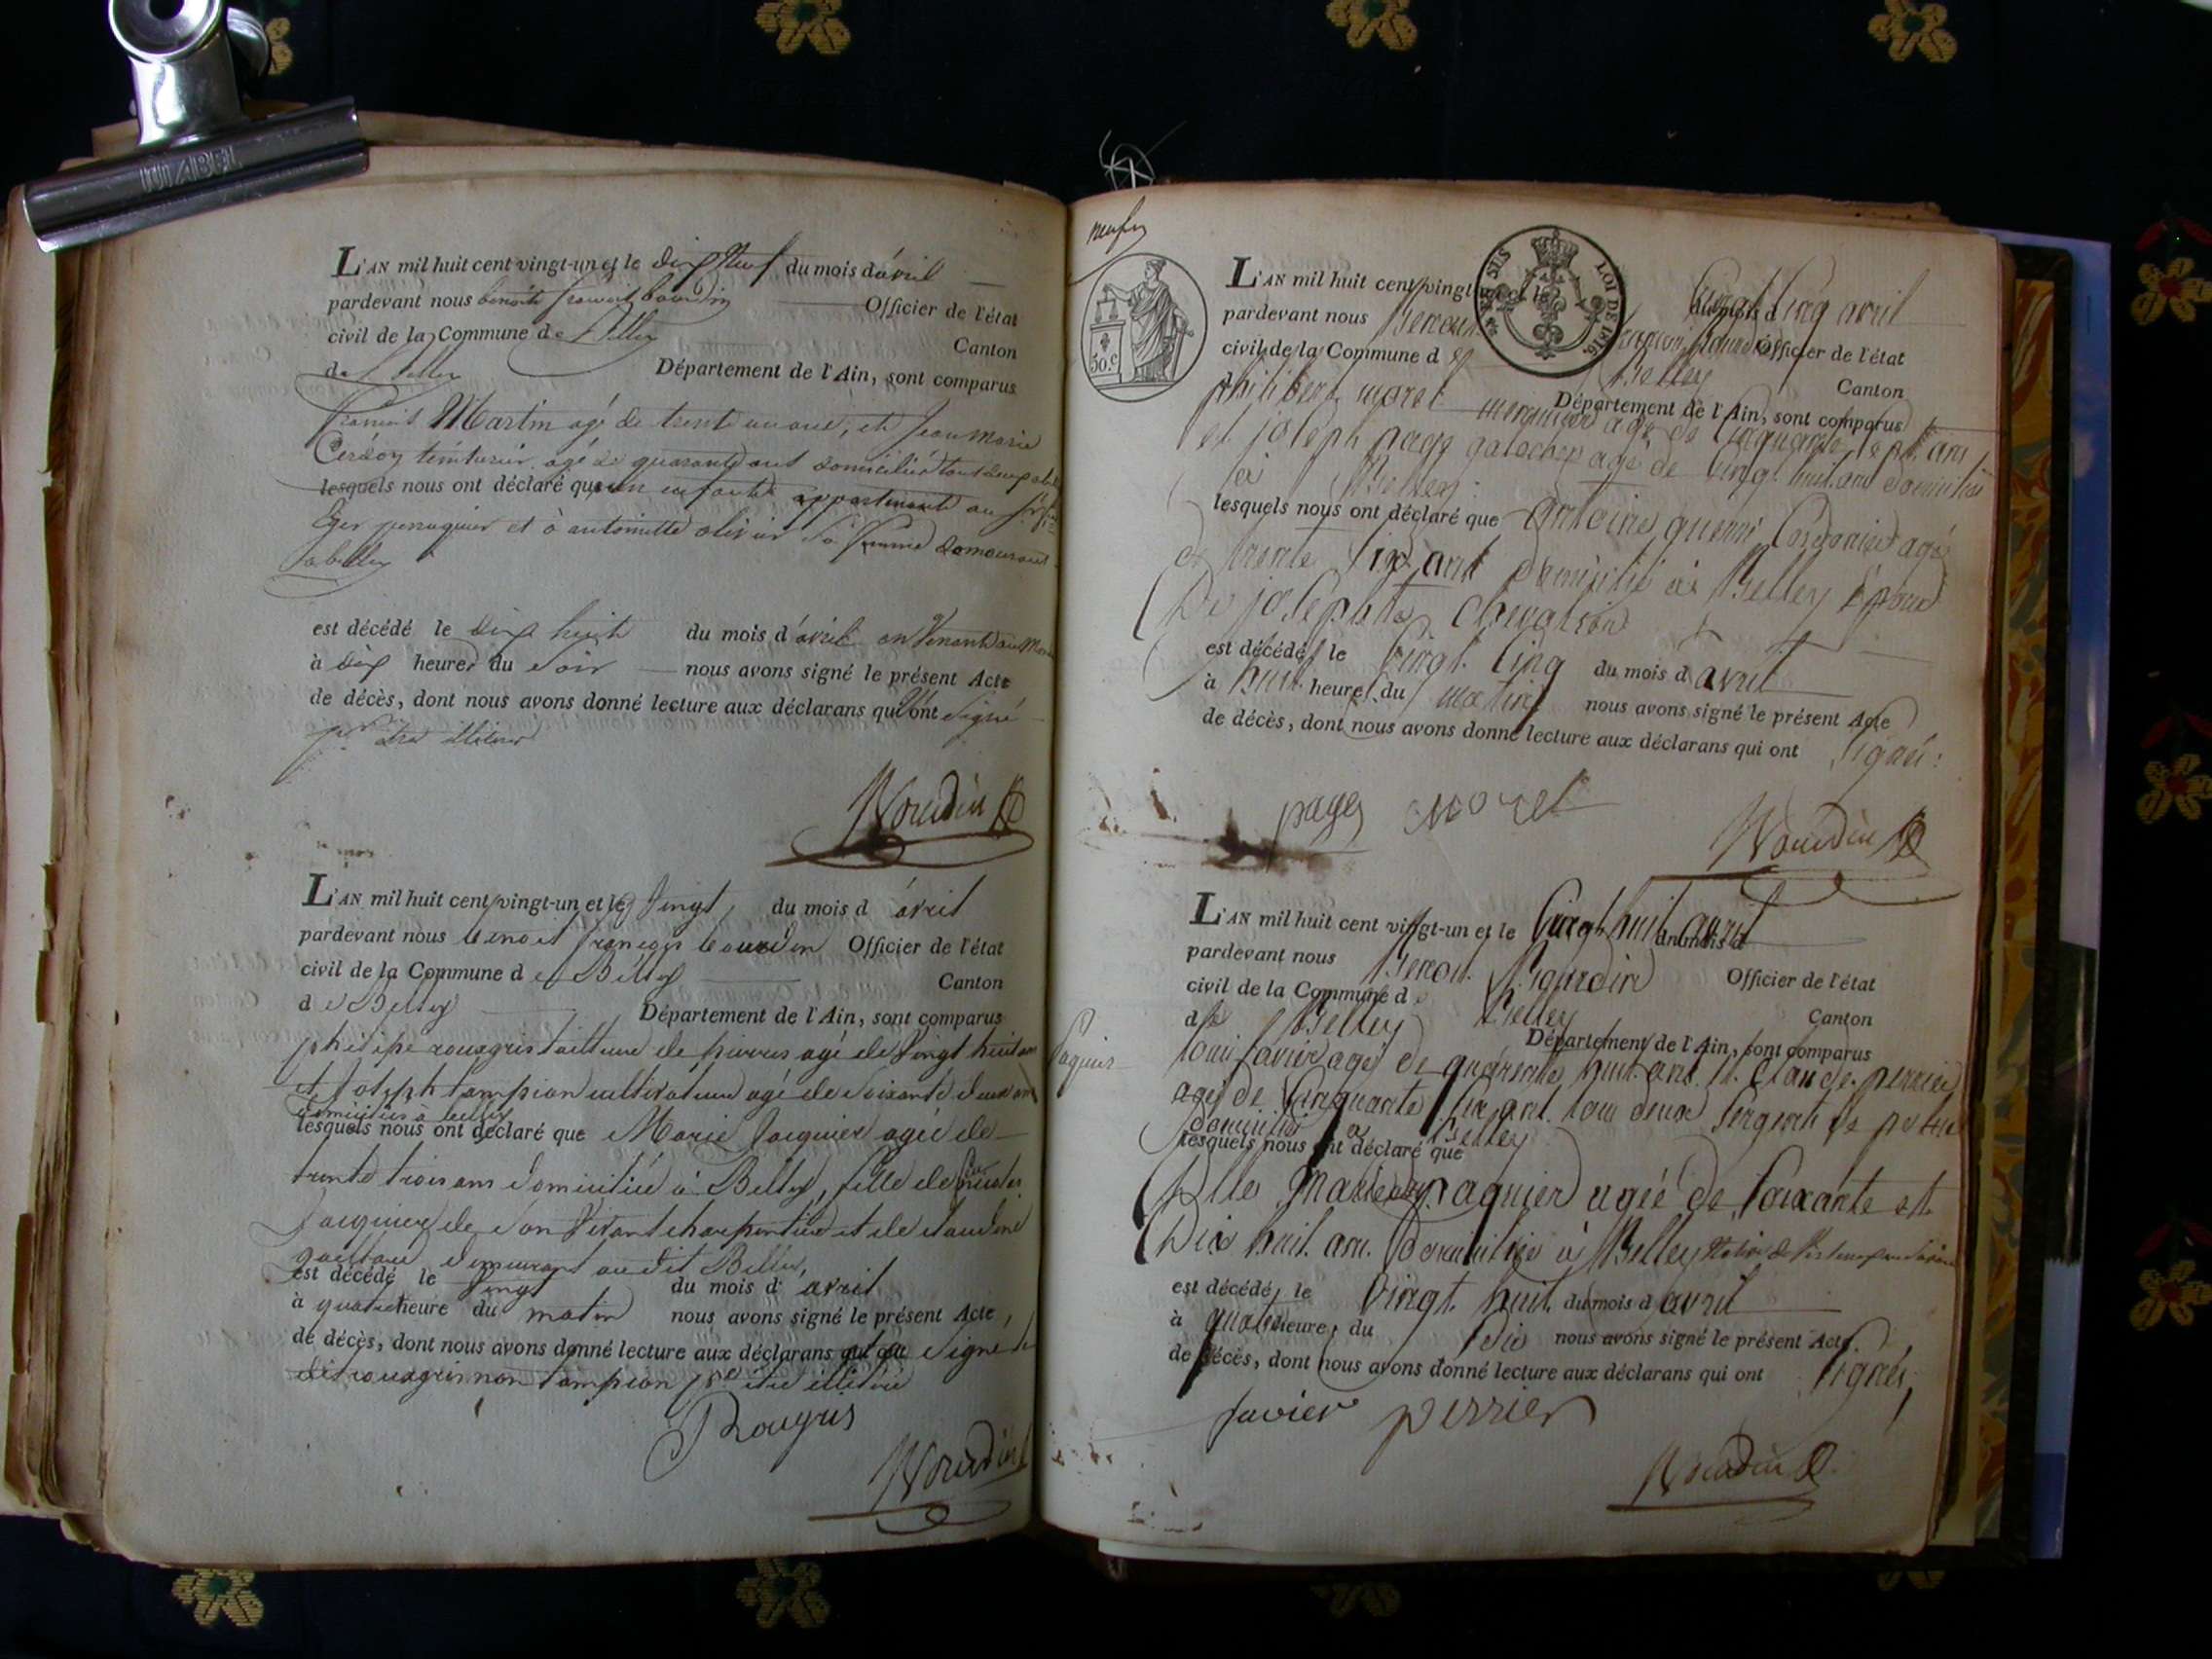 L'AN mil huit cent vingt-un et le dix Neuf du mois d'avril
pardevant nous benoit francois bourdin Officier de l'état
civil de la Commune de Belley Canton
de Belley Département de l'Ain, sont comparus
francois Martin agé de trente un ans, et Jean Marie
Cerdon teinturier agé de quarante ans domiciliés tous deux
lesquels nous ont déclaré que un enfant appartenant au
Eger perruquier et à antoinette olivier sa femme demeurant
à belley
est décédé le dix huit du mois d'avril en Venant au Monde
à dix heures du Soir nous avons signé le présent Acte
de décès, dont nous avons donné lecture aux déclarans qui ont signé
pr être illitéré
Bourdin
L'AN mil huit cent vingt-un et le Vingt du mois d avril
pardevant nous benoit françois bourdin Officier de l'état
civil de la Commune d e Belley Canton
d e Belley Département de l'Ain, sont comparus
phelipe rouxgris tailleure de pierres agé de Vingt huit ans
et Joseph tampion cultivateure agé de Soixante deux ans
domiciliés à belley
lesquels nous ont déclaré que Marie Jacquier agée de
trente trois ans domiciliée à Belley, fille de feu
Jacquier de son Vivant charpentier et de claudine
gaillard demeurant au dit Belley,
est décédé le Vingt du mois d' avril
à quatre heure du matin nous avons signé le présent Acte
de décès, dont nous avons donné lecture aux déclarans qui ont Signé le
dit rouxgris non tampion pr être illitéré
Rougris
Bourdin
50.c
LOI DE 1816.
L'AN mil huit cent vingt-un et le du mois d Vingt Cinq avril
pardevant nous Benoit francois Bourdin Officier de l'état
civil de la Commune d e Belley Canton
d Département de l'Ain, sont comparus
philibert morel menuisier agé de Cinquante sept ans
et joseph page galocher agé de Vingt huit ans domiciliés
à Belley
lesquels nous ont déclaré que antoine guerin Cordonier agé
de trente six ans domicilié à Belley Epoux
De josephte Chevalron
est décédé le Vingt Cinq du mois d avril
à huit heures du matin nous avons signé le présent Acte
de décès, dont nous avons donné lecture aux déclarans qui ont Signés:
page Morel
Bourdin
L'AN mil huit cent vingt-un et le Vingt huit avril du mois d
pardevant nous Benoit Bourdin Officier de l'état
civil de la Commune d e Belley Canton
de Belley Département de l'Ain, sont comparus
Paquier
louis favier agé de quarante huit ans et Claude perrier
agé de Cinquante six ans tous deux Sergents de police
domiciliés à Belley
lesquels nous ont déclaré que
Dlle Marie paquier agée de Soixante et
Dix huit ans domiciliée à Belley
est décédé le Vingt huit du mois d avril
à quatre heure du Soir nous avons signé le présent Acte.
de décès, dont nous avons donné lecture aux déclarans qui ont Signés,
favier perrier
Bourdin